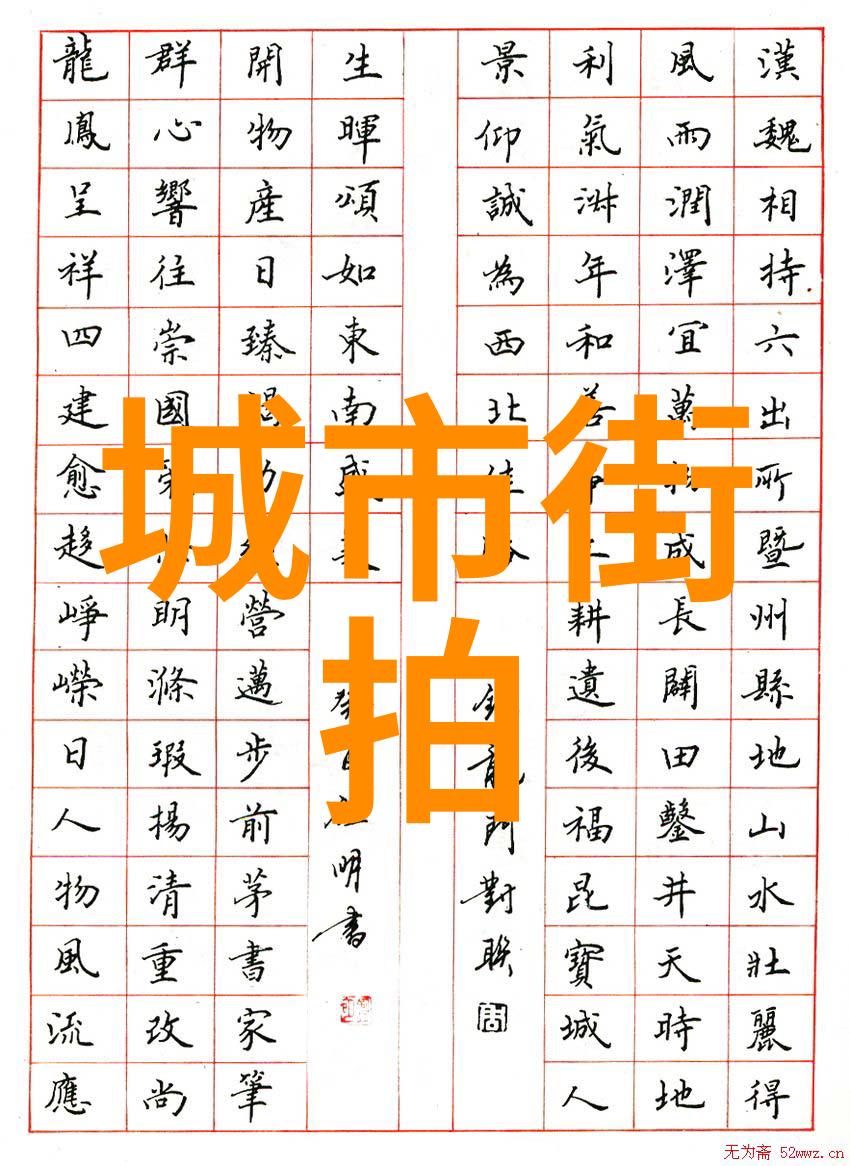 城市街
拍
漢魏相持六出所暨州縣地山水壯麗得
風雨潤澤宜萬成長闢田鑿井天時地
利氣年和善耕遺後福昆寶城人
景仰誠為西北
龍門對聯
生暉頌如東南盛
明書
開物產日臻營邁步前茅書家筆
群心響往崇國明滌瑕揚清重改尚
龍鳳呈祥四建愈趍崢嶸日人物風流應
无为斋 52wwz.cn